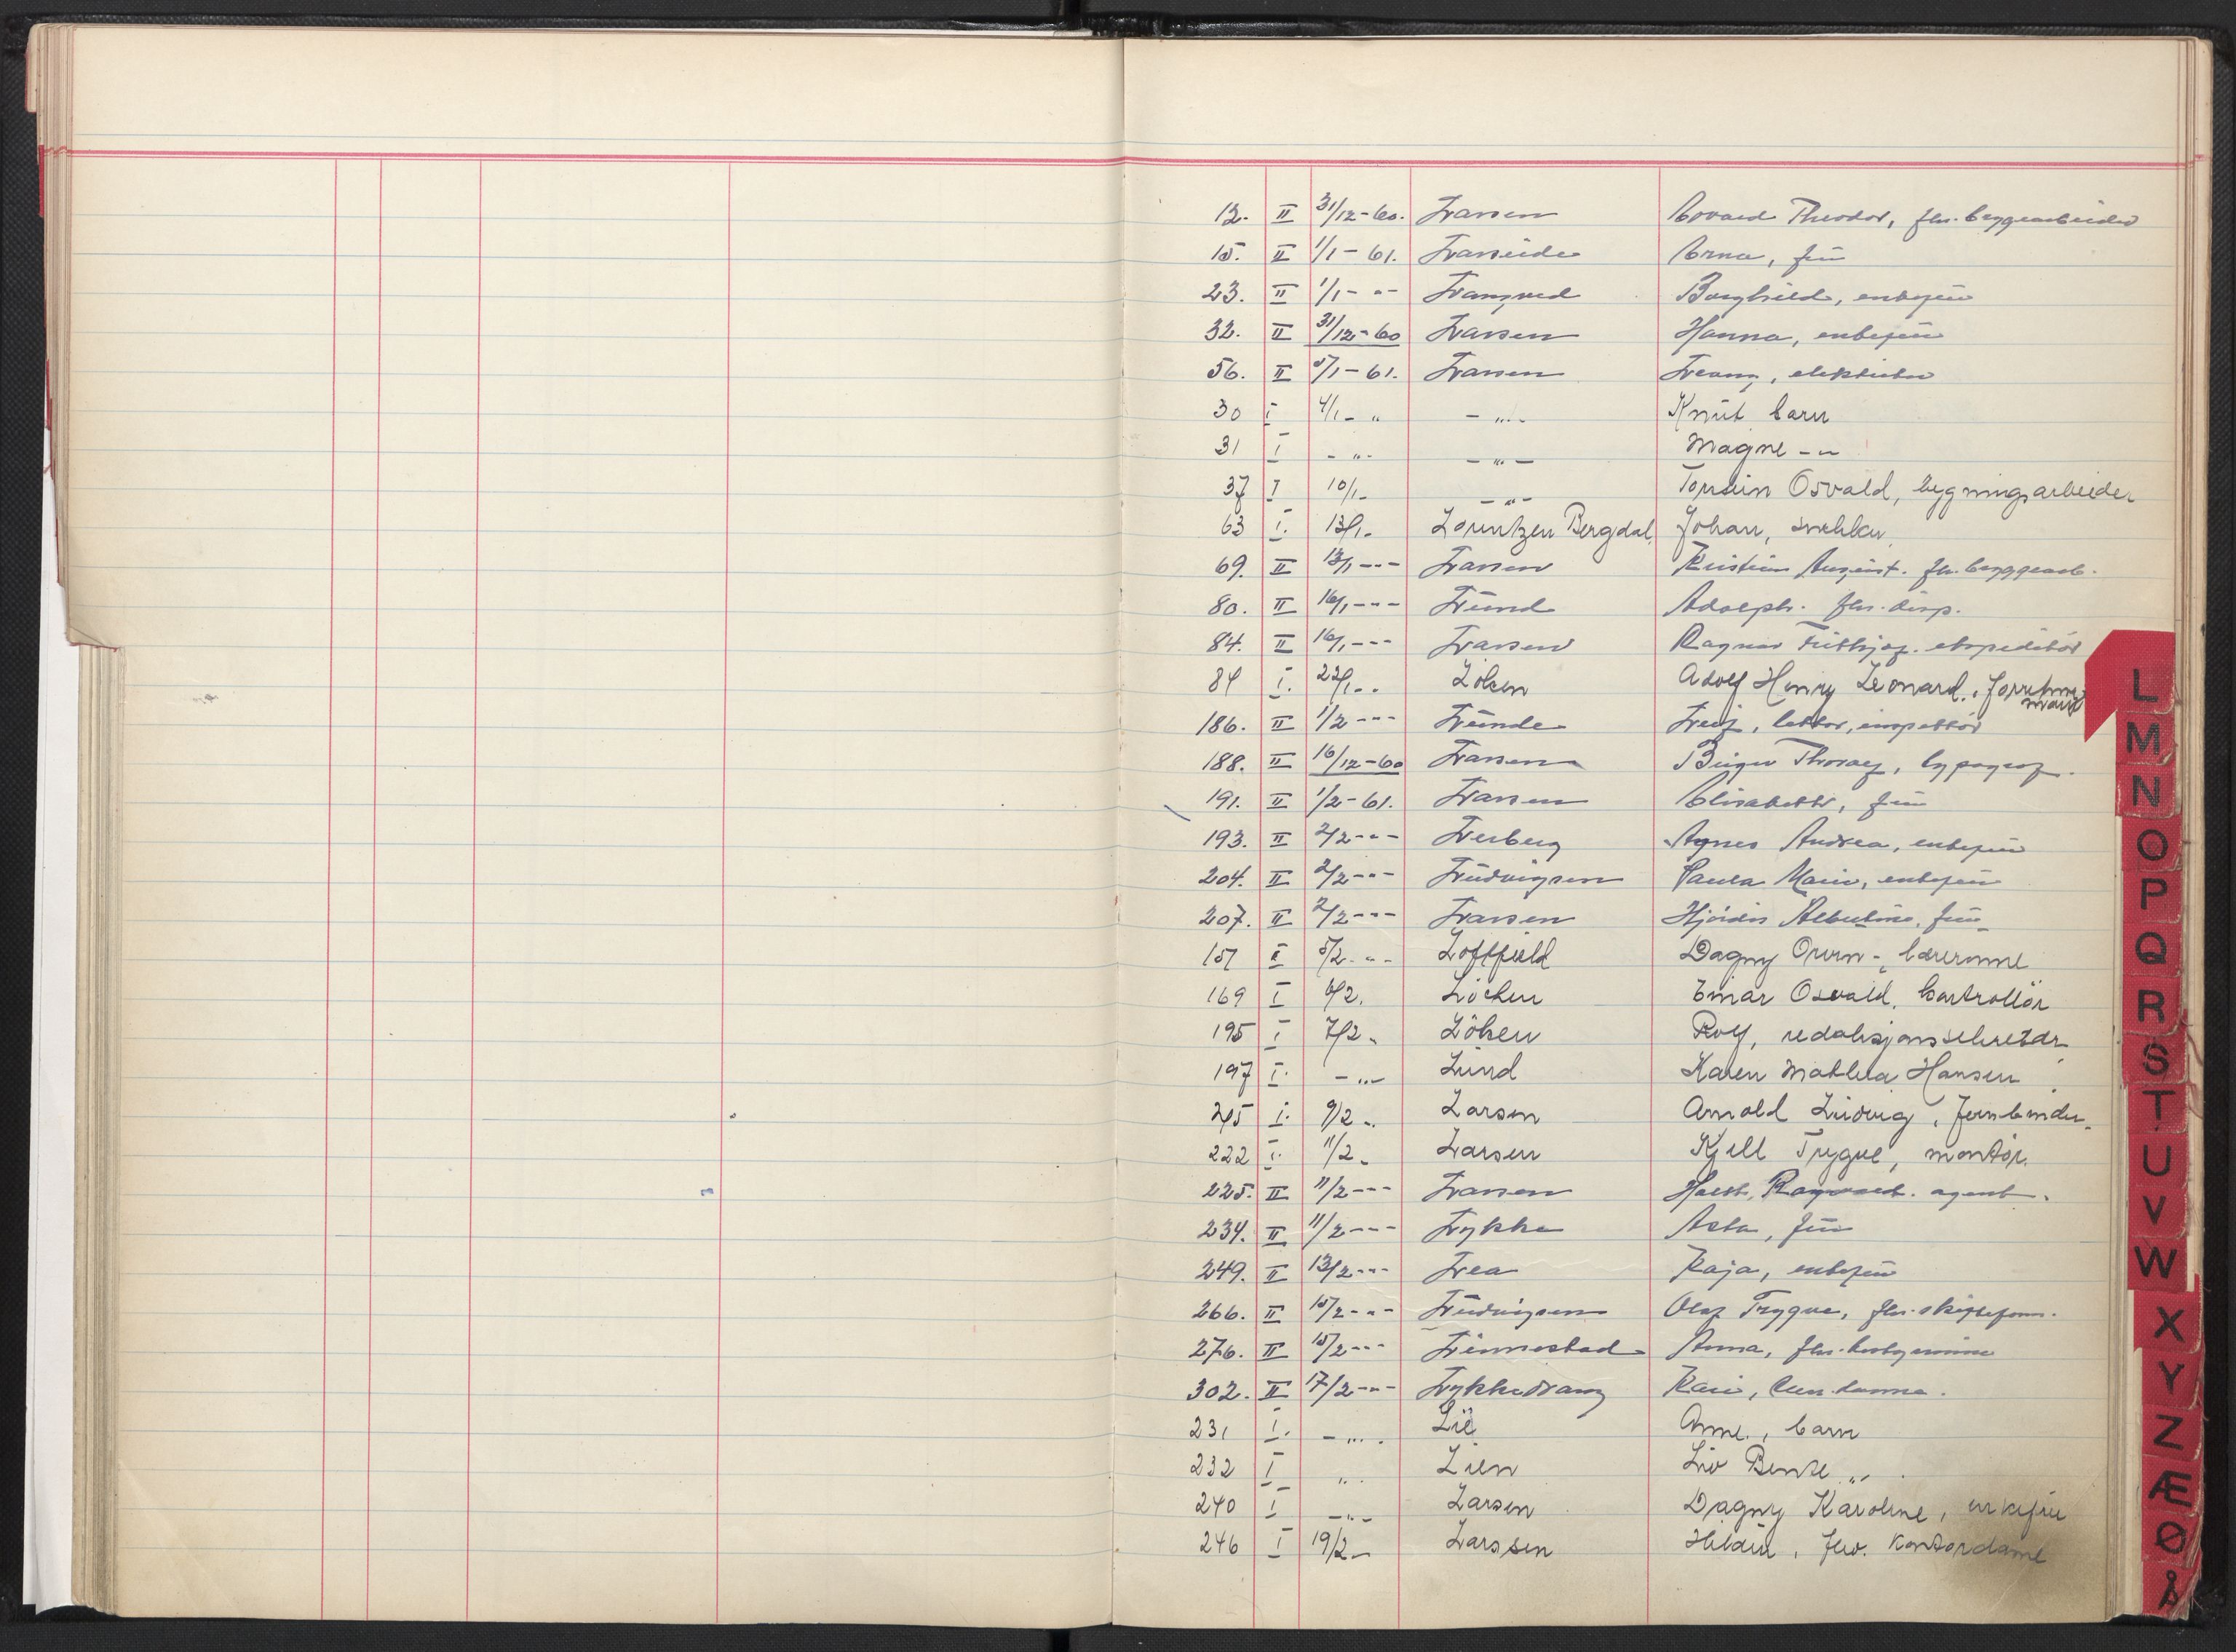 12. II 31/12-60. Larsen Edvard Theodor, fhv. bryggearbeider
15. II 1/1-61. Larseide Erna, frü
23. II 1/1- " - Langved Borghild, enkefrü
32. II 31/12-60 Larsen Hanna, enkefrü
56. II 5/1-61. Larsen Georg, elektriker
30 I 4/1- " - " - Knüt barn
31 I - " - - " - Magne - " -
37 I 10/1- - " - Torstein Osvald, bygningsarbeider
63 I. 13/1- Lorentzen Bergdal, Johan, snekker
69. II 13/1 - " - Larsen Kristian Augüst. fhv. bryggearb.
80. II 16/1 - " - Lünd Adolph. fhv. disp.
84. II 16/1 - " - Larsen Ragnar Frithjof. ekspeditör
84 I. 22/1 - - Löken Adolf Henry Leonard. forretnings
mand
186. II 1/2 - " - Lünde Leif, lektor, inspektör
188. II 16/12-60 Larsen Birger Thoralf, typograf.
191. II 1/2-61. Larsen Elisabeth, frü
193. II 2/2 - " - Lerberg Agnes Andrea, enkefrü
204. II 2/2 - " - Lüdvigsen Paula Marie, enkefrü
207. II 2/2 - " - Larsen Hjördis Albertine. frü
157 I 5/2. - " - Loftfield Dagny - lærerinne
169 I 6/2. Löchen Einar Osvald, kontrollör
195 I 7/2 - Löken Rolf, redaksjonssekretær
197 I. - " - Lünd Karen Mathea Hansen
I. 9/2 - Larsen Arnold Lüdvig, jernbinder.
222 I. 11/2 - Larsen Kjell Trygve, montör.
225. II 11/2 - " - Larsen Holst, Ragnvald. agent.
234. II 11/2 - " - Lykke Asta, frü
249. II 13/2 - " - Lea Kaja, enkefrü
266. II 15/2 - " - Lüdvigsen Olaf Trygve, fhv. skifteform.
276. II 15/2 - " - Linnestad Anna, fhv. bestyrerinne
302. II 17/2 - " - Lykkedrang Kari,
231 I. - " - . Lie Anne, barn
232 I " . Lien Liv Bente "
240 I - " - Larsen Dagny Karoline, enkefrü
246 I 19/2 - Larssen fhv. Kontordame
L
M
N
O
P
Q
R
S
T
U
V
W
X
Y
Z
Æ
Ø
Å